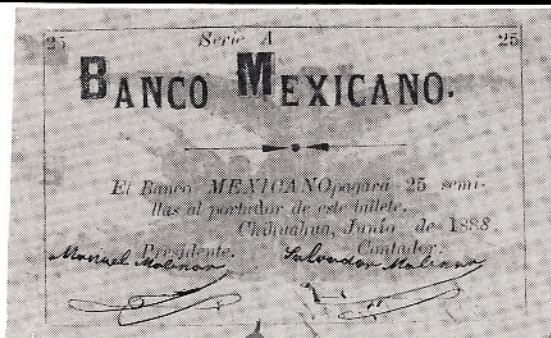 25 Serie A 25
BANCO MEXICANO.
El Banco MEXICANO pagará 25 semi-
llas al portador de este billete.
Chihuahua, Junio de 1888
Presidente. Contador.
Manuel Molinar Salvador Molinar